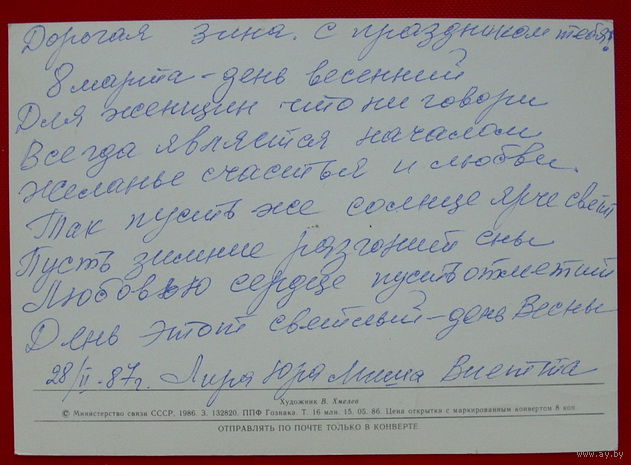 Дорогая Зина. С праздником тебя!
8 марта - день весенний
Для женщин что ни говори
Всегда является началом
Желанье счастья и любви.
Так пусть же солнце ярче светит
Пусть зимние разгонит сны
Любовью сердце пусть отметит
День этот светлый - день Весны
28/II-87г. Лира Юра Миша Виетта
Художник В. Хмелев
© Министерство связи СССР, 1986. З. 132820. ППФ Гознака. Т. 16 млн. 15. 05. 86. Цена открытки с маркированным конвертом 8 коп
ОТПРАВЛЯТЬ ПО ПОЧТЕ ТОЛЬКО В КОНВЕРТЕ
www.ay.by